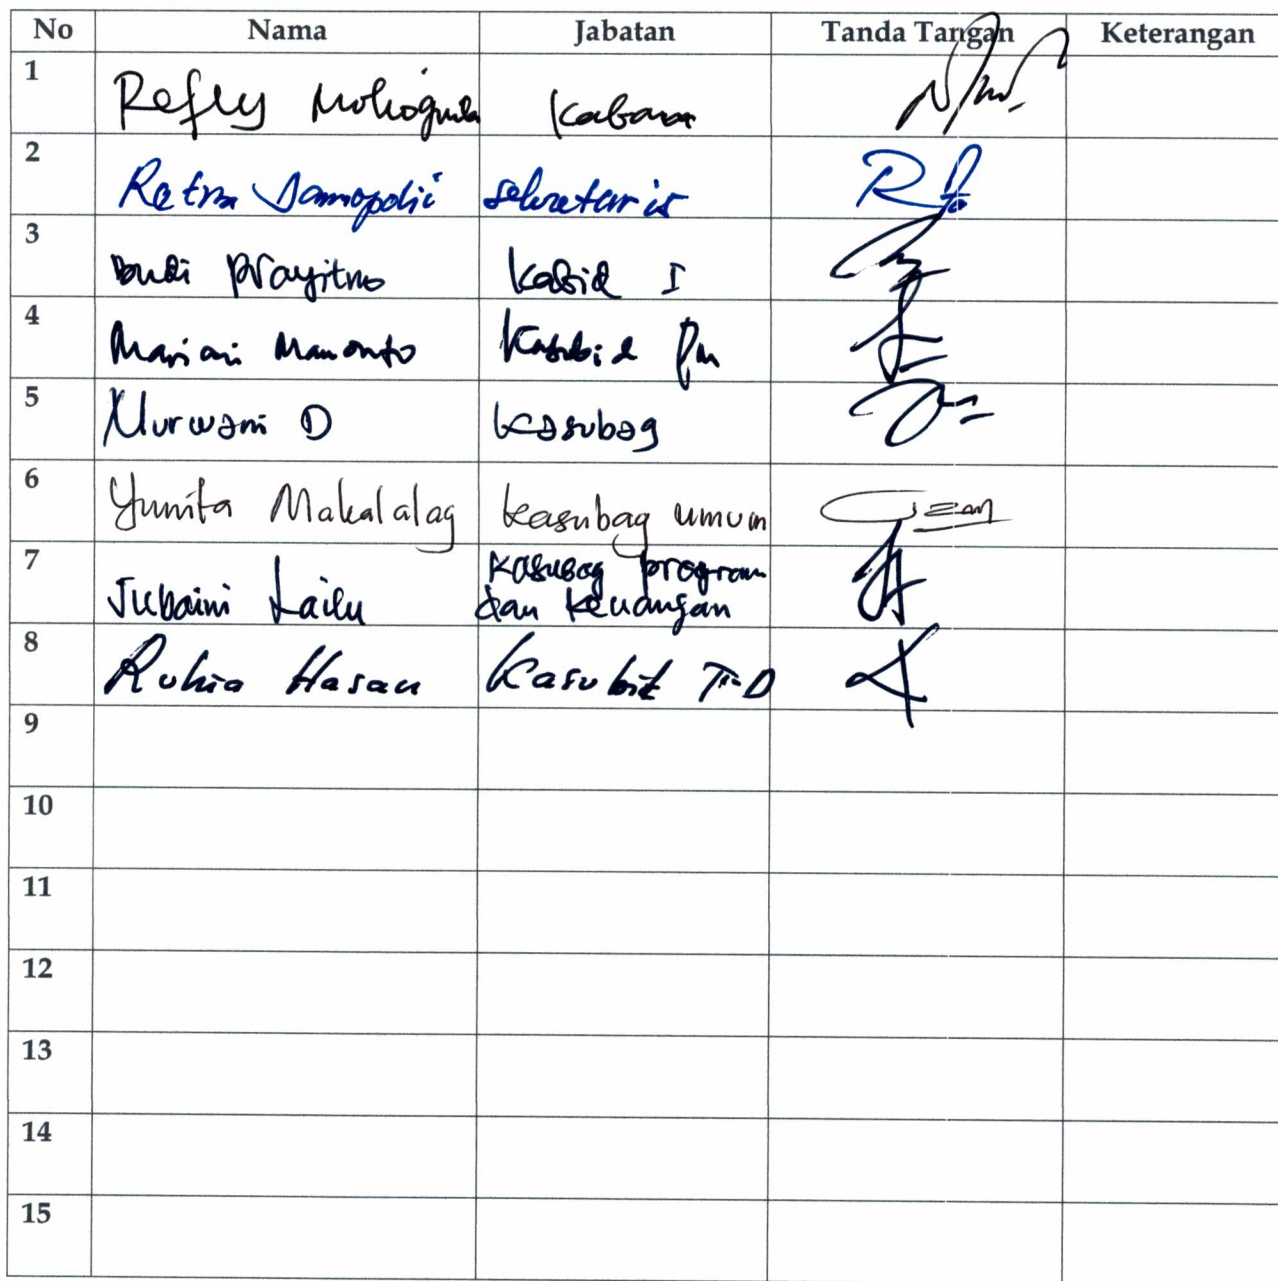 No Nama Jabatan Tanda Tangan Keterangan
1 Refly Mokoginta Kaban
2 Retna Damopolii sekretaris
3 Budi Prayitno Kabid I
4 Mariani Mamonto Kasubid Pm
5 Nurwani D Kasubag
6 Yunita Makalalag Kasubag umum
7 Jubaini Lailu Kasubag program
dan Keuangan
8 Ruhia Hasan Kasubid
9
10
11
12
13
14
15